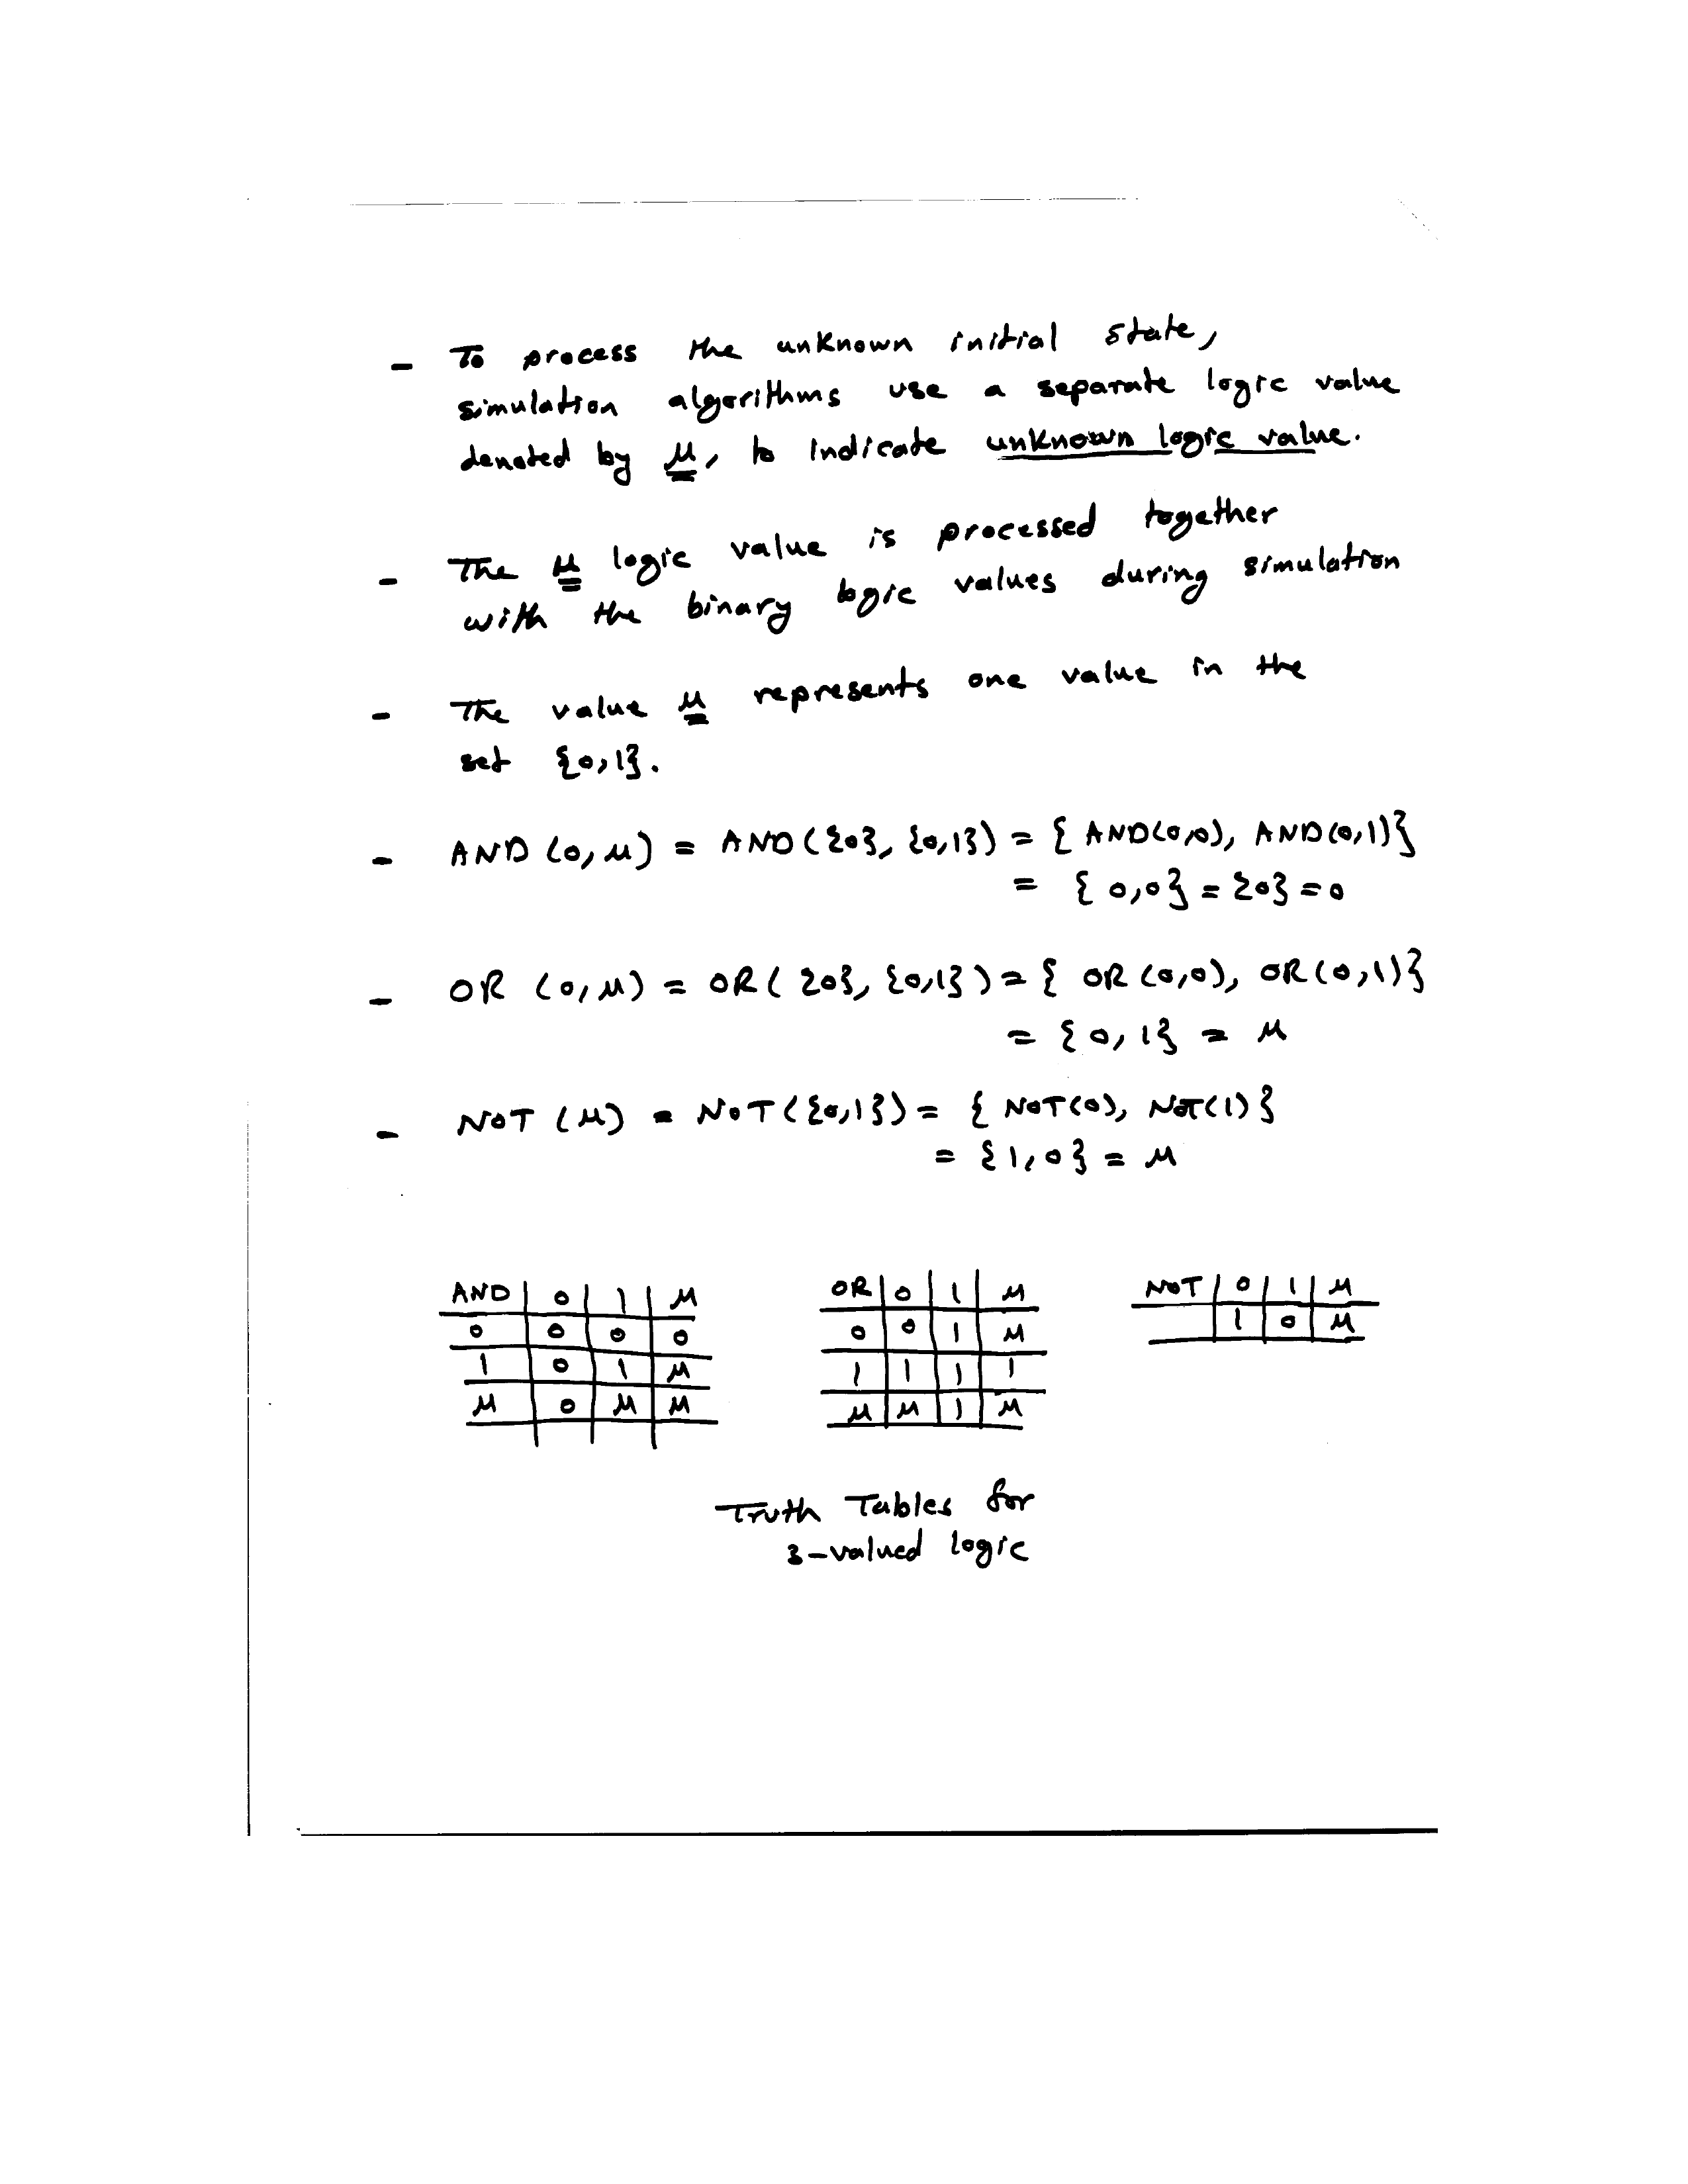 - To process the unknown initial state,
simulation algorithms use a separate logic value
denoted by μ, to indicate unknown logic value.
- The μ logic value is processed together
with the binary logic values during simulation
- The value μ represents one value in the
set {0,1}.
- AND (0,μ) = AND({0}, {0,1}) = { AND(0,0), AND(0,1)}
= { 0,0} = {0} = 0
- OR (0,μ) = OR( {0}, {0,1} ) = { OR (0,0), OR(0,1)}
= {0, 1} = μ
- NOT (μ) = NOT({0,1}) = { NOT(0), NOT(1)}
= {1,0} = μ
AND 0 1 μ
0 0 0 0
1 0 1 μ
μ 0 μ μ
OR 0 1 μ
0 0 1 μ
1 1 1 1
μ μ 1 μ
NOT 0 1 μ
1 0 μ
Truth Tables for
3-valued logic